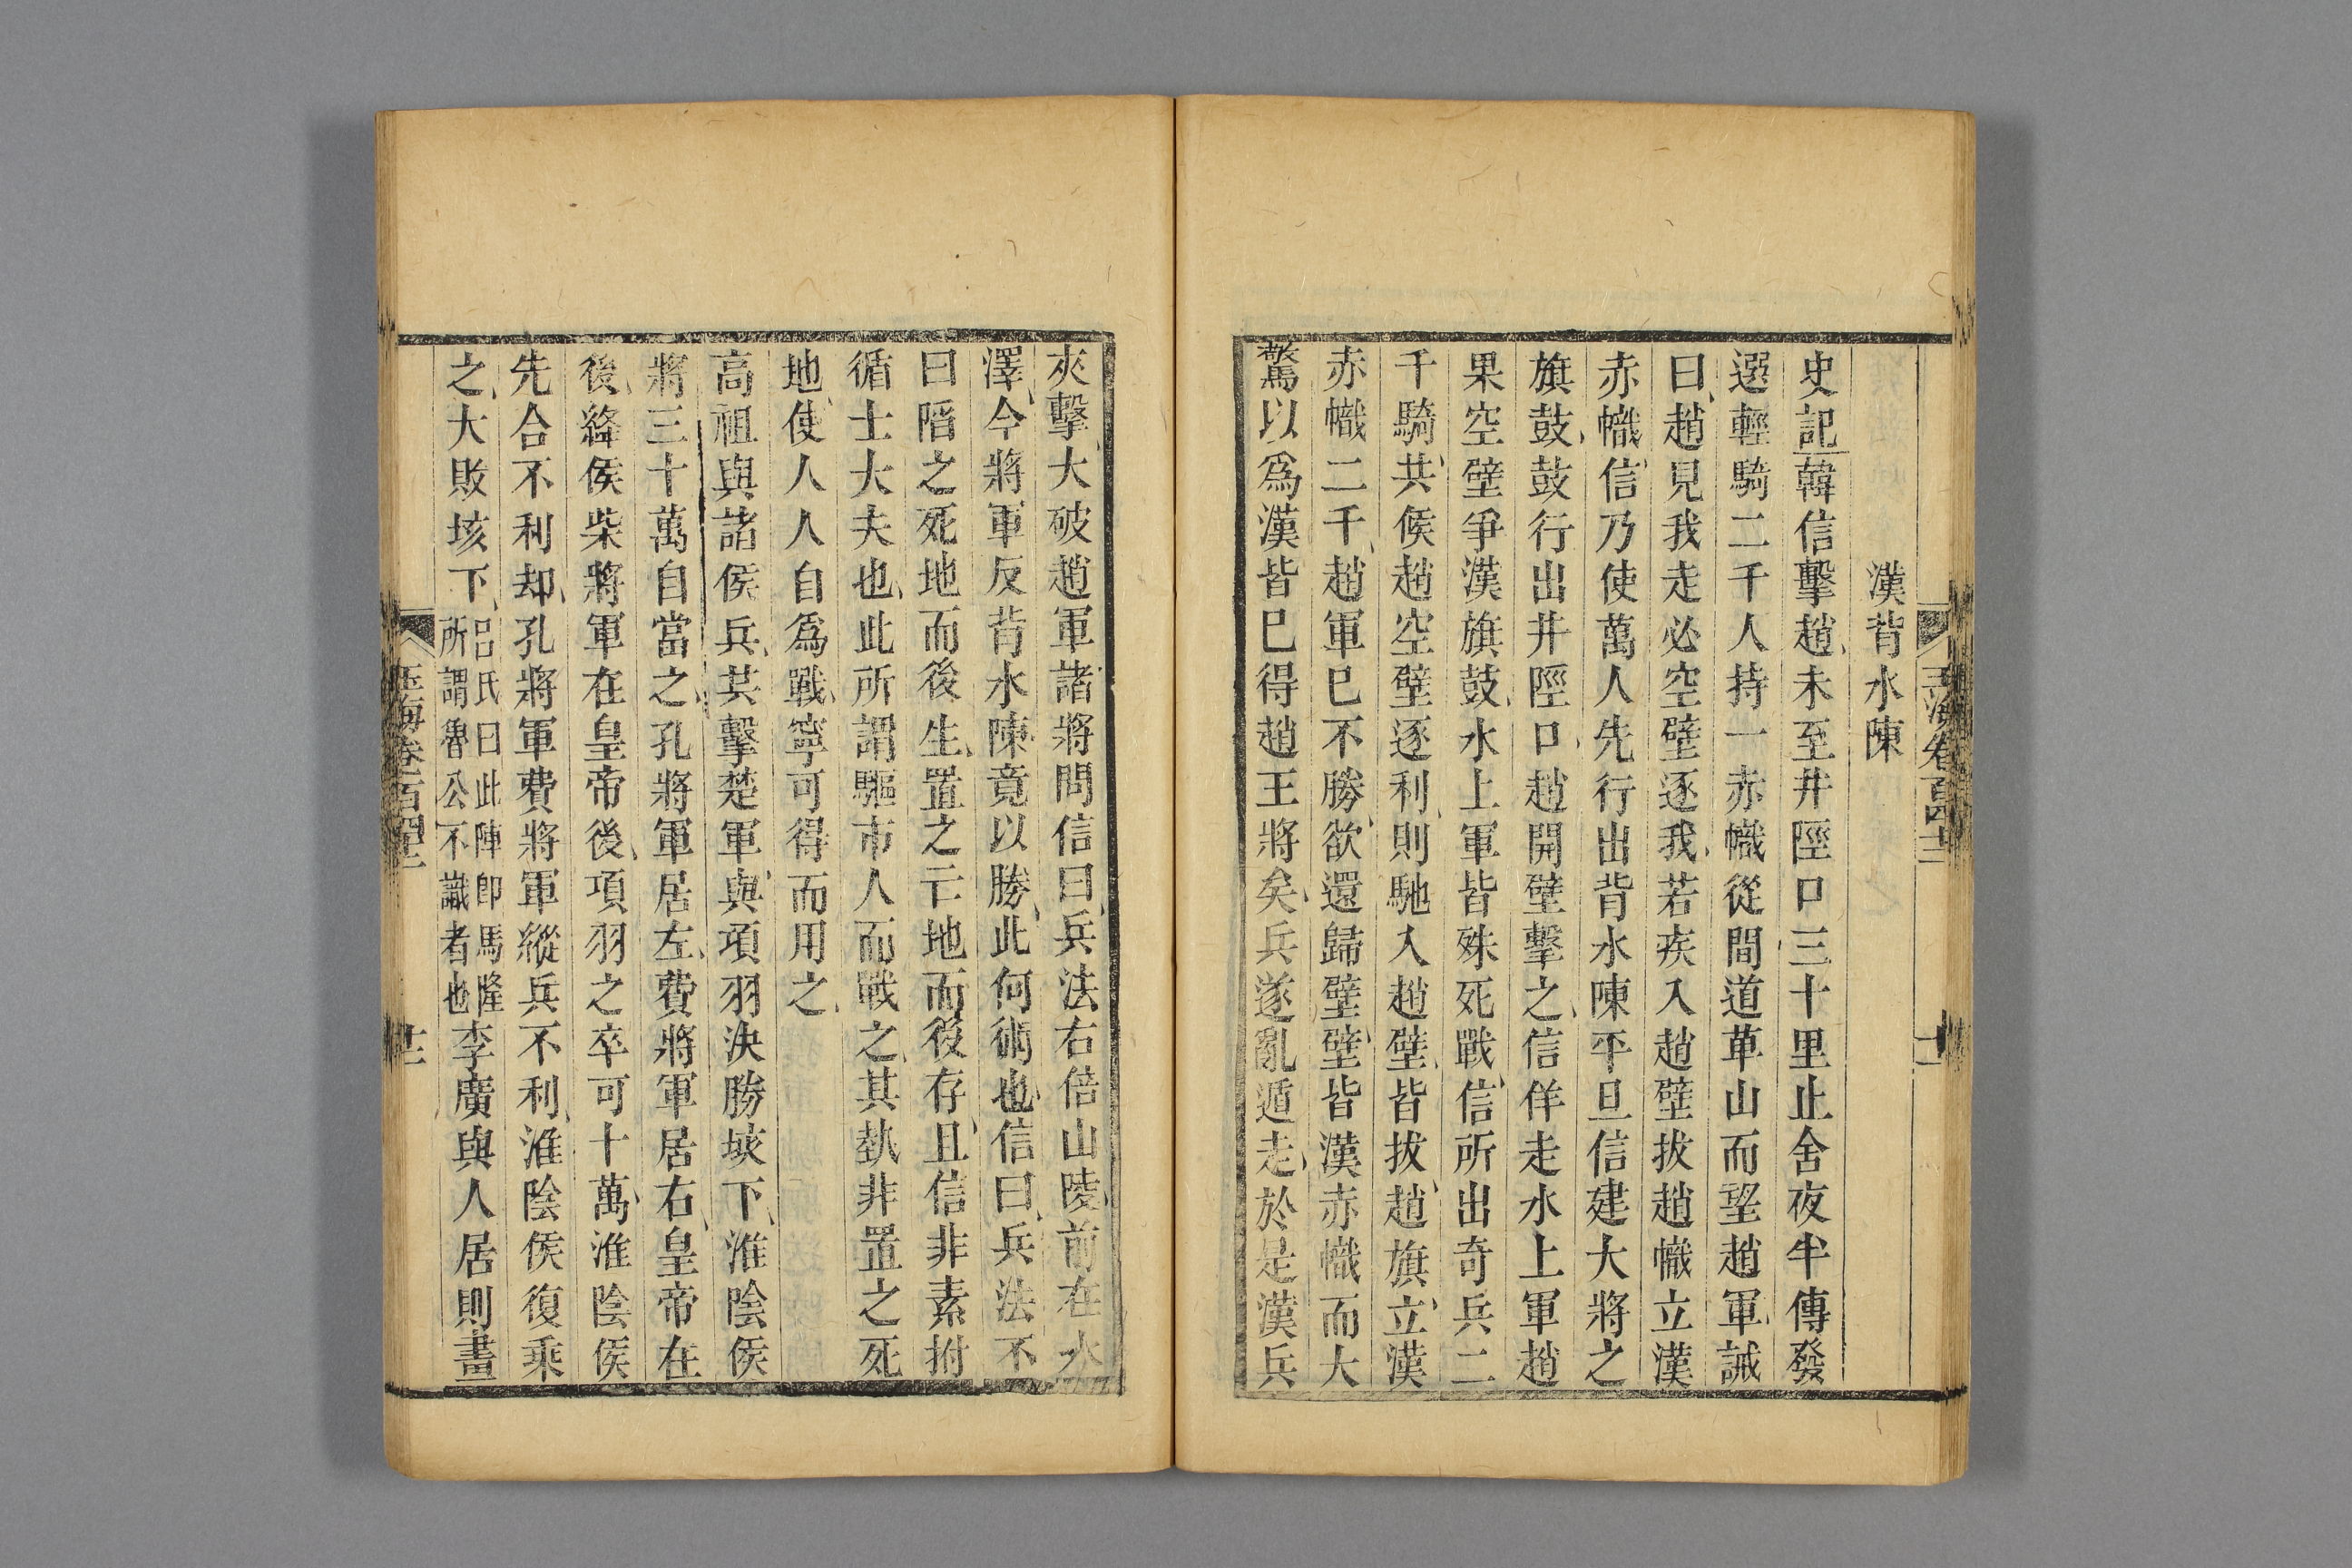 漢背水陳
史記韓信擊趙未至井陘口三十里止舍夜半傳發
選輕騎二千人持一赤幟從間道萆山而望趙軍誡
曰趙見我走必空壁逐我若疾入趙壁拔趙幟立漢
赤幟信乃使萬人先行出背水陳平旦信建大將之
旗鼓鼓行出井陘口趙開壁擊之信佯走水上軍趙
果空壁爭漢旗鼓水上軍皆殊死戰信所出奇兵二
千騎共候趙空壁逐利則馳入趙壁皆拔趙旗立漢
赤幟二千趙軍已不勝欲還歸壁壁皆漢赤幟而大
驚以爲漢皆已得趙王將矣兵遂亂遁走於是漢兵
夾擊大破趙軍諸將問信曰兵法右倍山陵前在水
澤今將軍反背水陳竟以勝此何術也信曰兵法不
曰陷之死地而後生置之亡地而後存且信非素拊
循士大夫也此所謂驅市人而戰之其埶非置之死
地使人人自爲戰寧可得而用之
高祖與諸侯兵共擊楚軍與項羽決勝垓下淮陰侯
將三十萬自當之孔將軍居左費將軍居右皇帝在
後絳侯柴將軍在皇帝後項羽之卒可十萬淮陰侯
先合不利却孔將軍費將軍縱兵不利淮陰侯復乘
之大敗垓下呂氏曰此陣卽馬隆所謂魯公不識者也李廣與人居則畫
玉海卷一百四十二